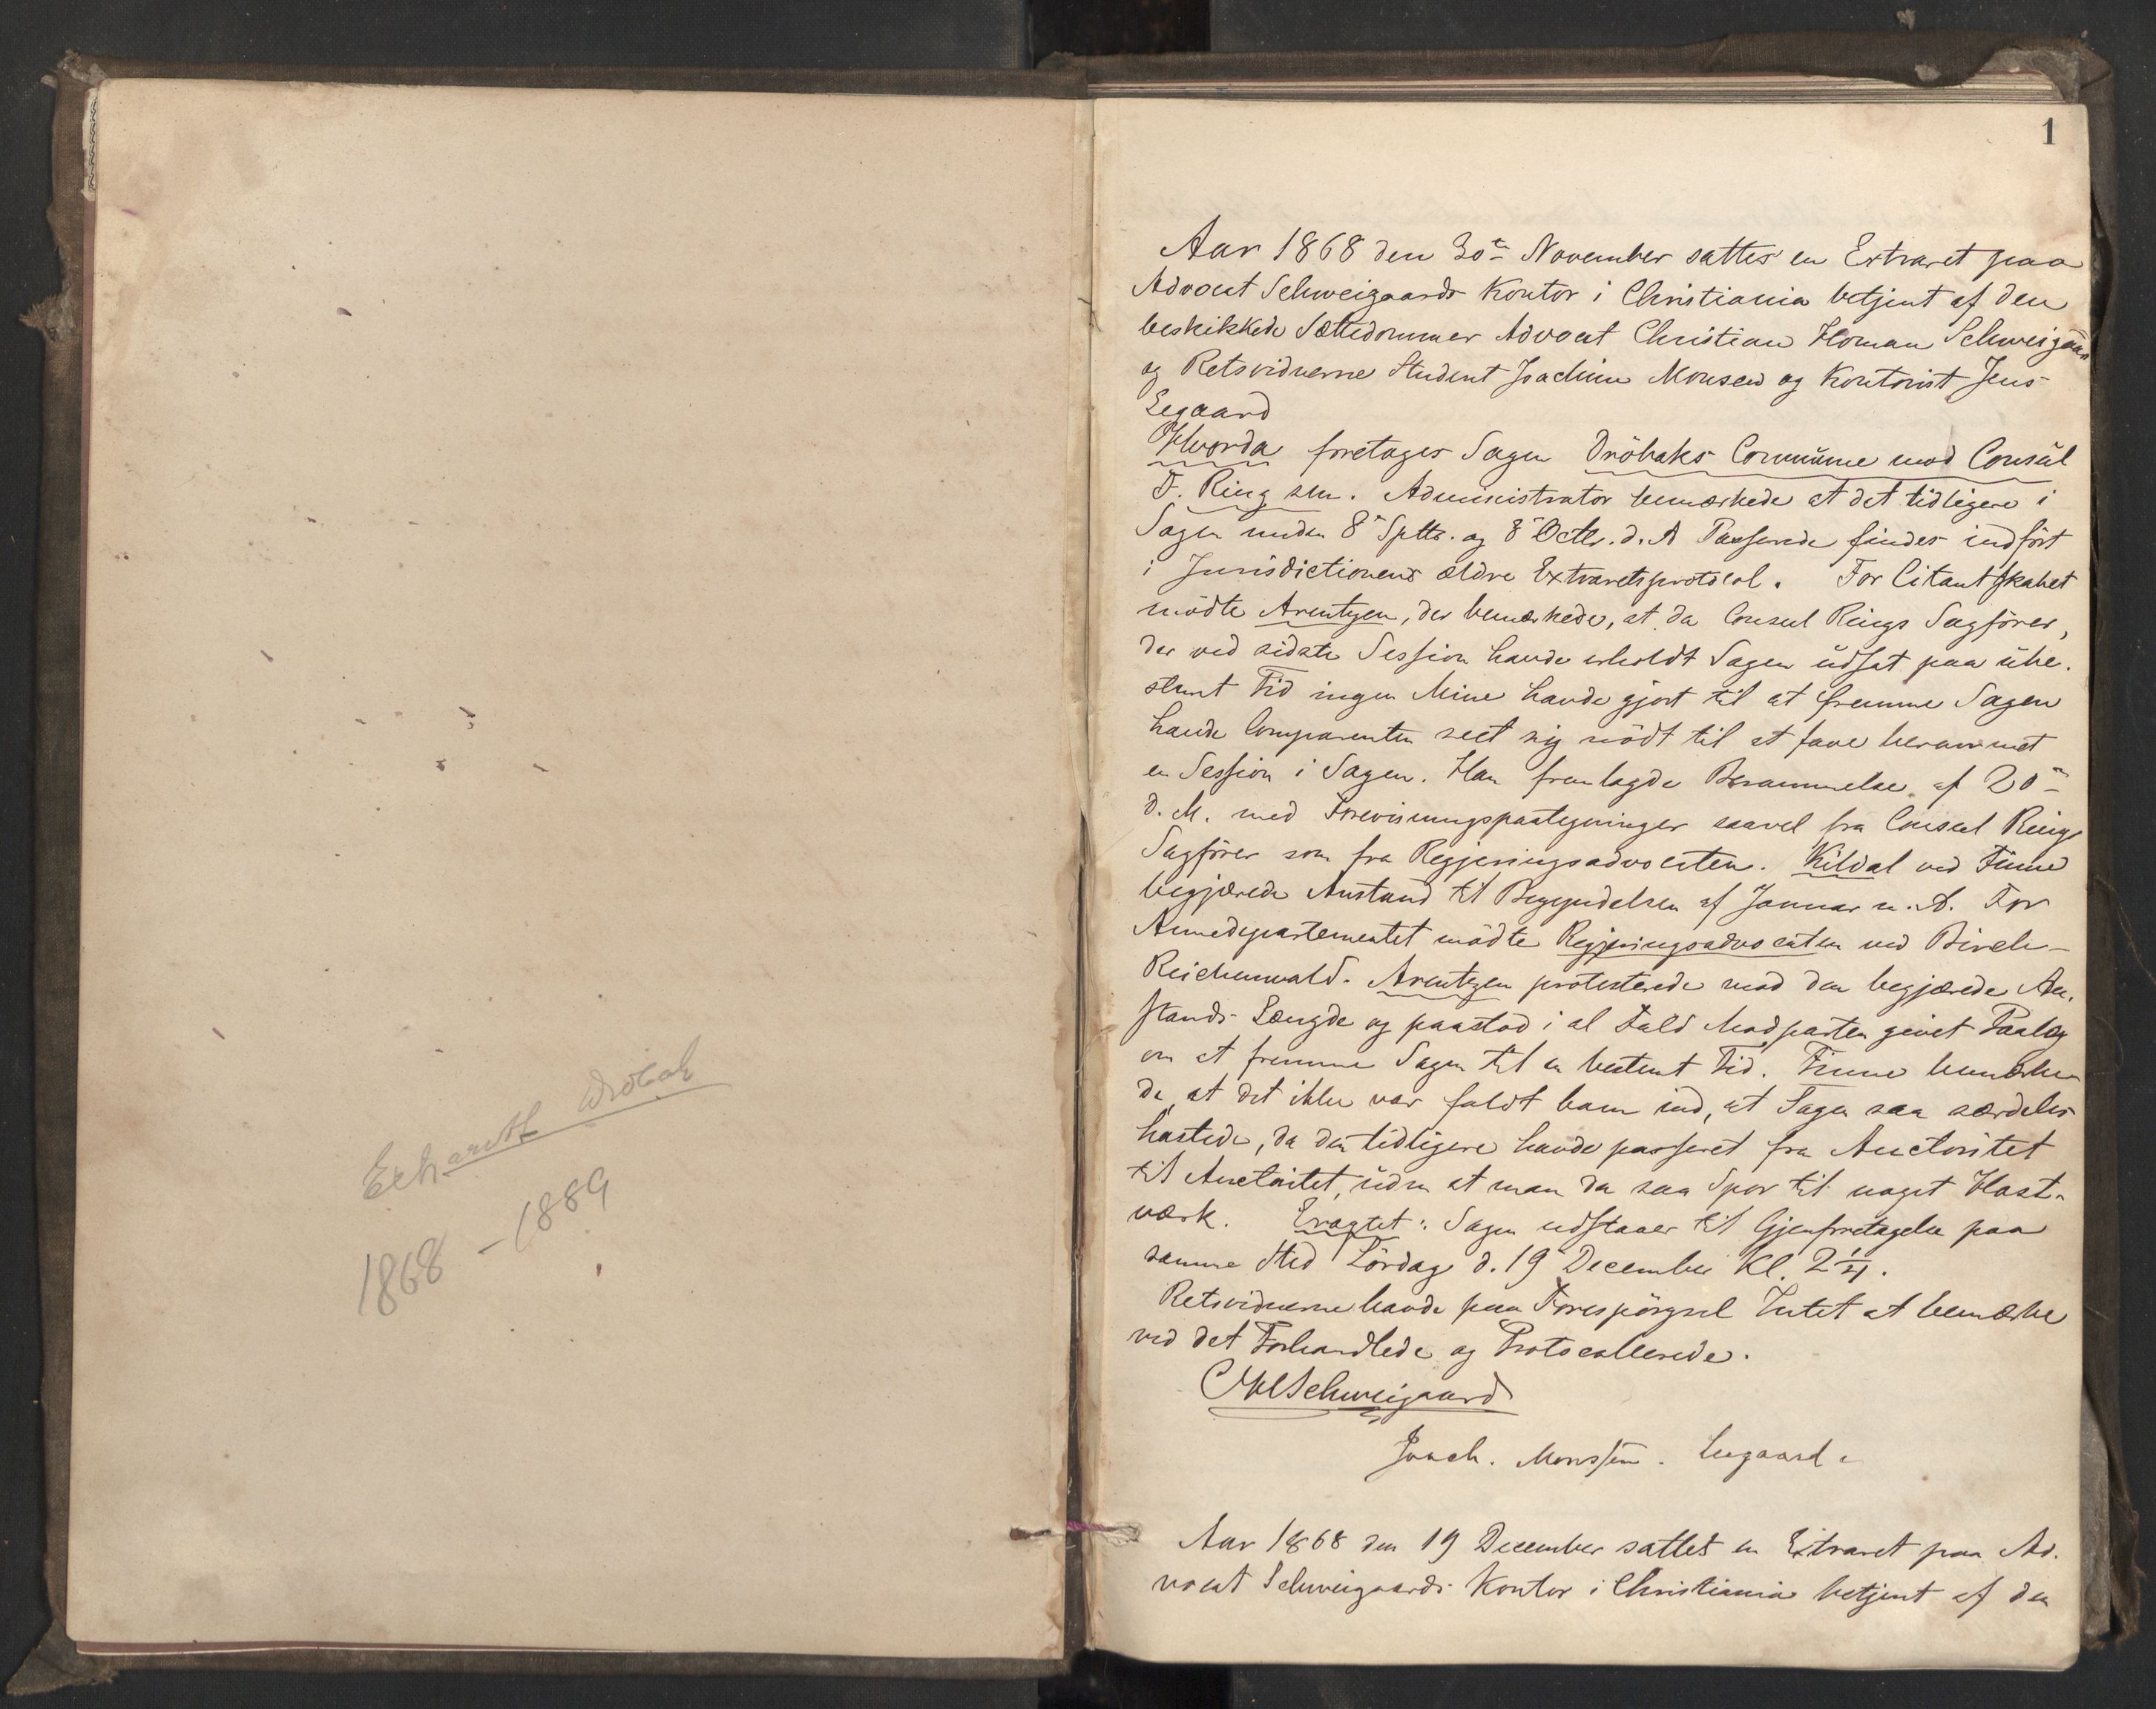 Exh arett Drobak
1868 - 1889
1
Aar 1868 den 30te November sattes en Extraret paa
Advocat Schweigaards Kontor i Christiania betjent af den
beskikkede Sættedommer Advocat Christian Homan Schweigaard
og Retsvidnerne Student Joachim Monsen og Kontorist Jens
Eegaard
Hvorda foretoges Sagen Dröbaks Commune mod Consul
F. Ring sen. Administrator bemærkede at det tidligere i
Sagen under 8de Septbr. og 8de Octbr. d. A Passerede findes indfört
i Jurisdictionens ældre Extraretsprotocol. For Citantskabet
mödte Arentzen, der bemærkede, at da Consul Rings Sagförer,
der ved sidste Session havde erholdt Sagen udsat paa ube-
stemt Tid ingen Mine havde gjort til at fremme Sagen
havde Comparenten seet sig nödt til at faae berammet
en Session i Sagen. Han fremlagde Berammelse af 20de
d. M. med Forevisningspaategninger saavel fra Consul Rings
Sagförer som fra Regjeringsadvocaten. Kildal ved Finne
begjærede Anstand til Begyndelsen af Januar n. A. For
Armedepartementet mödte Regjeringsadvocaten ved Birch-
Reichenwald. Arentzen protesterede mod den begjærede An-
stands Længde og paastod i al Fald Modparten givet Paalæg
om at fremme Sagen til en bestemt Tid. Finne bemærke-
de, at det ikke var faldt ham ind, at Sagen saa særdeles
hastede, da den tidligere havde passeret fra Auctoritet
til Auctoritet, uden at man da saa Spor til noget Hast-
værk. Eragtet: Sagen udstaaer til Gjenforetagelse paa
samme Sted Lördag d. 19de December Kl. 2 1/4.
Retsvidnerne havde paa Forespörgsel Intet at bemærke
ved det Forhandlede og Protocollerede.
CHSchweigaard
Joach. Monssen. Eegaard.
Aar 1868 den 19 December sattes en Extraret paa Ad-
vocat Schweigaards Kontor i Christiania betjent af den